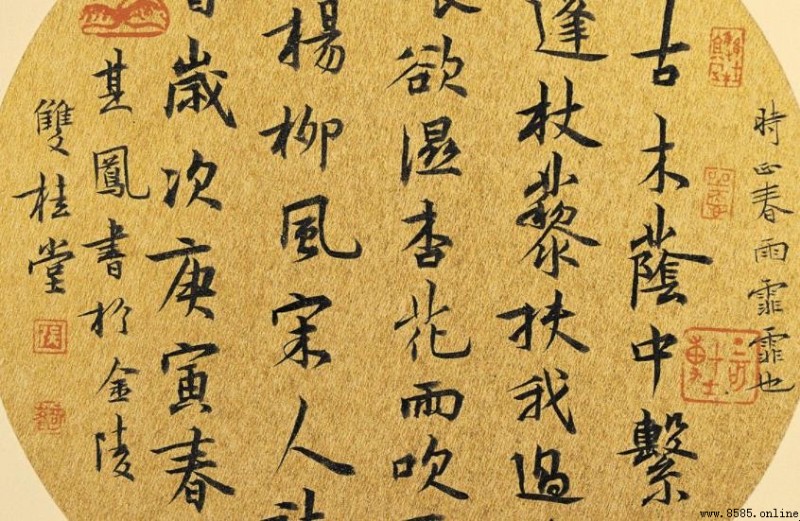 時正春雨霏霏也
古木蔭中繫
篷杖藜扶我過
欲濕杏花雨吹
楊柳風宋人
歲次庚寅春
鳳書於金陵
雙桂堂
www.8585.online